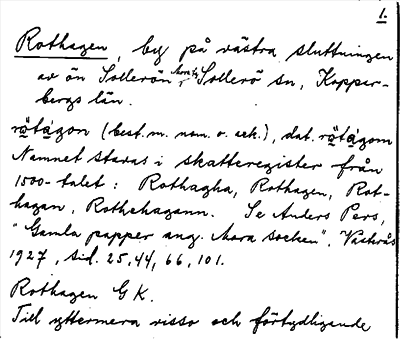 1.
Rothagen, by på västra sluttningen
av ön Sollerön, Mora tg, Sollerö sn, Koppar-
bergs län.
rǫ̈tågon (best. m. nom. o. ack.), dat. rǫ̈tågom
Namnet stavas i skatteregister från
1500-talet: Rothagha, Rothagen, Rot-
hagan, Rothehagann. Se Anders Pers,
"Gamla papper ang. Mora socken", Västerås
1927, sid. 25, 44, 66, 101.
Rothagen GK.
Till yttermera visso och förtydligande